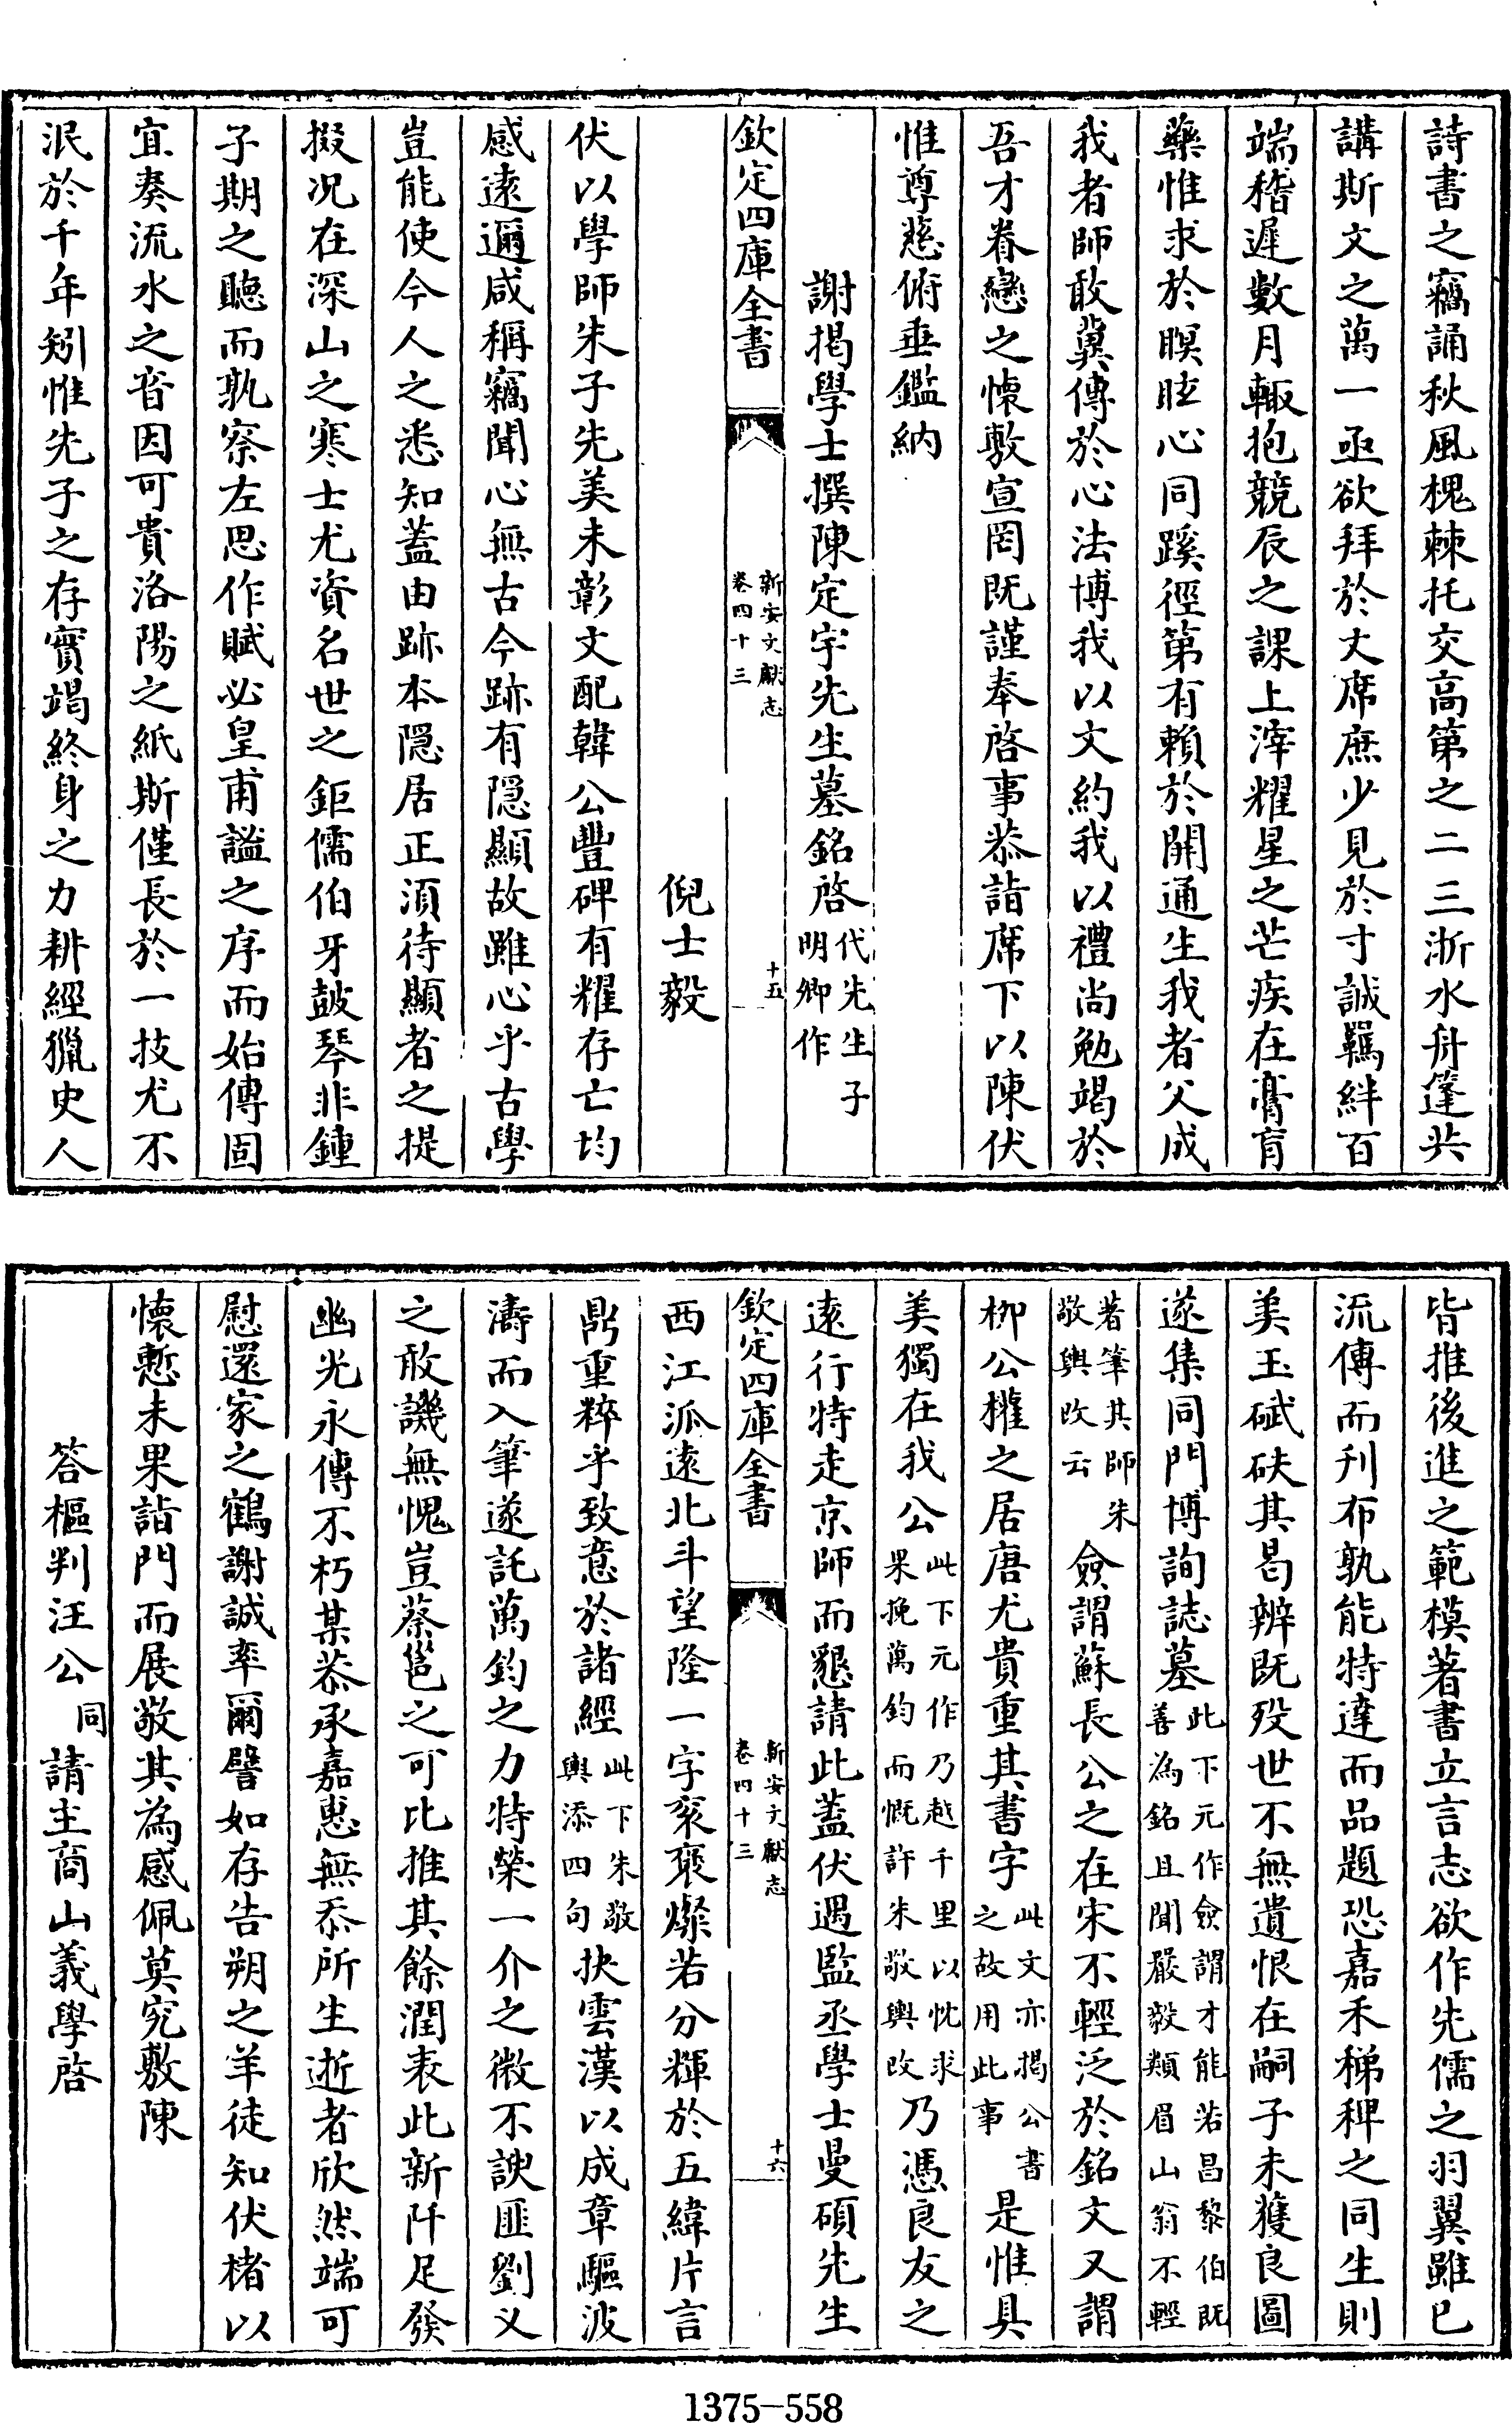 詩書之竊誦秋風槐棘托交高第之二三浙水舟篷共
講斯文之萬一亟欲拜於丈席庶少見於寸誠羈絆百
端稽遲數月輙抱競辰之課上滓耀星之芒疾在膏肓
藥惟求於瞑眩心同蹊徑第有賴於開通生我者父成
我者師敢冀傳於心法博我以文約我以禮尚勉竭於
吾才眷戀之懷敷宣罔既謹奉啓事恭詣席下以陳伏
惟尊慈俯垂鑑納
謝揭學士撰陳定宇先生墓銘啓代先生子明卿作
欽定四庫全書
新安文獻志
卷四十三
十五
倪士毅
伏以學師朱子先美未彰文配韓公豐碑有耀存亡均
感逺邇咸稱竊聞心無古今跡有隠顯故雖心乎古學
豈能使今人之悉知蓋由跡本隠居正湏待顯者之提
掇况在深山之寒士尤資名世之鉅儒伯牙鼓琴非鍾
子期之聽而孰察左思作賦必皇甫謐之序而始傳固
宜奏流水之音因可貴洛陽之紙斯僅長於一技尤不
泯於千年矧惟先子之存實竭終身之力耕經獵史人
皆推後進之範模著書立言志欲作先儒之羽翼雖已
流傳而刋布孰能特達而品題恐嘉禾稊稗之同生則
美玉碔砆其曷辨既殁世不無遺恨在嗣子未獲良圖
遂集同門博詢誌墓此下元作僉謂才能若昌黎伯既善為銘且聞嚴毅類眉山翁不輕
著筆其師朱敬輿改云僉謂蘇長公之在宋不輕泛於銘文又謂
柳公權之居唐尤貴重其書字此文亦揭公書之故用此事是惟具
美獨在我公此下元作乃越千里以忱求果挽萬鈞而慨許朱敬輿改乃憑良友之
逺行特走京師而懇請此蓋伏遇監丞學士曼碩先生
欽定四庫全書
新安文獻志
卷四十三
十六
西江派逺北斗望隆一字衮褒燦若分輝於五緯片言
鼎重粹乎致意於諸經此下朱敬輿添四句抉雲漢以成章驅波
濤而入筆遂託萬鈞之力特榮一介之微不諛匪劉义
之敢譏無愧豈蔡邕之可比推其餘潤表此新阡足發
幽光永傳不朽某恭承嘉惠無忝所生逝者欣然端可
慰還家之鶴謝誠率爾譬如存告朔之羊徒知伏楮以
懷慙未果詣門而展敬其為感佩莫究敷陳
答樞判汪公同請主商山義學啓
1375-558